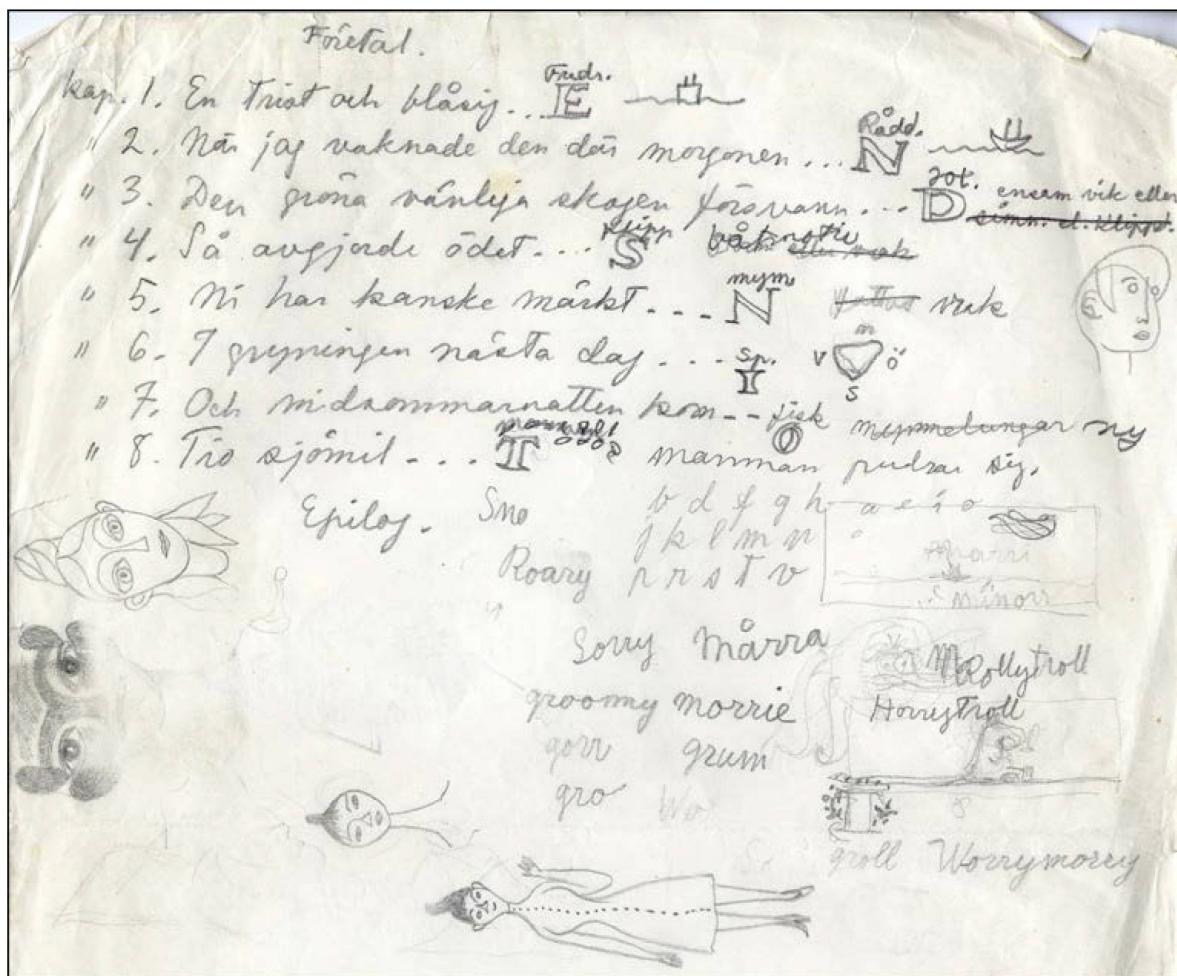 Företal.
Kap. 1. En trist och blåsig... E
" 2. När jag vaknade den där morgonen... Rådd. N
" 3. Den gröna vänliga skogen försvann... Jot. D ensam vik eller
" 4. Så avgjorde ödet... Klipp S
" 5. Ni har kanske märkt... mym N vrak
" 6. I gryningen nästa dag... Sp. I V n ö s
" 7. Och midsommarnatten kom-- O mymmelungar ny
" 8. Tio sjömil... T mamman pudrar sig.
Epilog. Sno b d f g h a e i o
j k l m n
Roary p r s t v
Sorry Mårra
Mrollytroll
groomy morrie Horrytroll
gorr grum
gro Wo
groll Worrymorry